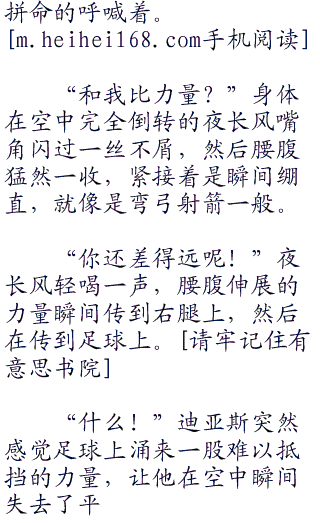 拼命的呼喊着。
[m.heihei168.com手机阅读]
“和我比力量？”身体
在空中完全倒转的夜长风嘴
角闪过一丝不屑，然后腰腹
猛然一收，紧接着是瞬间绷
直，就像是弯弓射箭一般。
“你还差得远呢！”夜
长风轻喝一声，腰腹伸展的
力量瞬间传到右腿上，然后
在传到足球上。[请牢记住有
意思书院]
“什么！”迪亚斯突然
感觉足球上涌来一股难以抵
挡的力量，让他在空中瞬间
失去了平